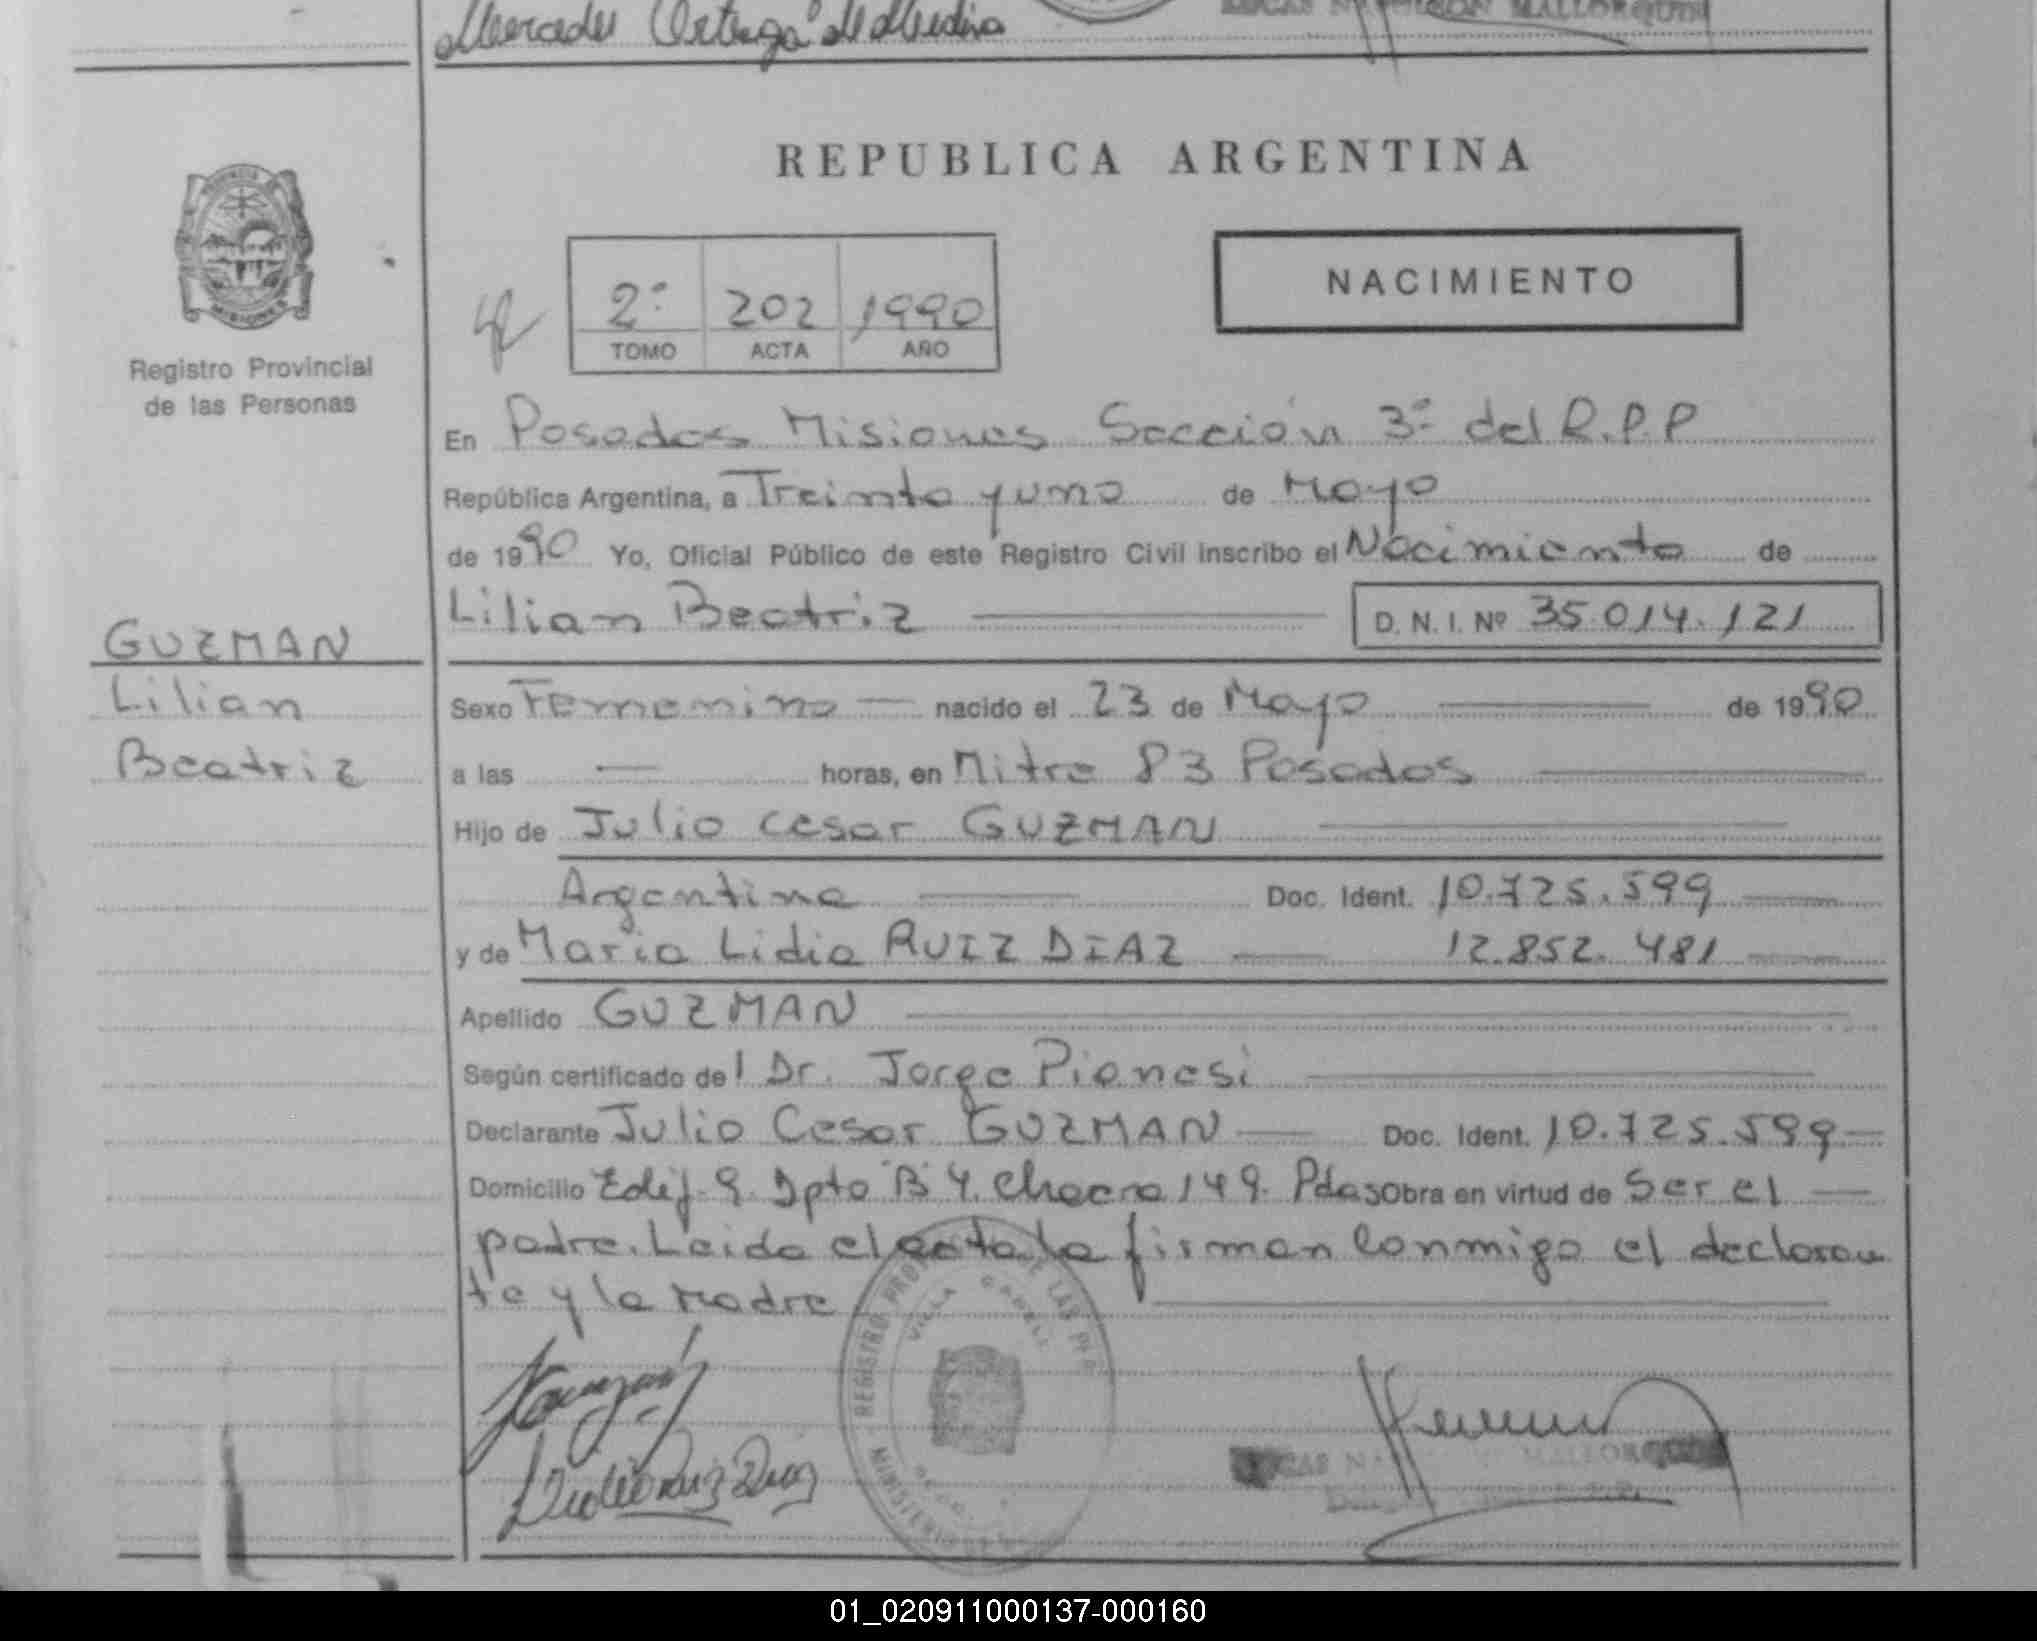 Mercedes Ortega de Medina
MALLORQUIN
REPUBLICA ARGENTINA
MISIONES
Registro Provincial
de las Personas
2º 202 1990
TOMO ACTA AÑO
NACIMIENTO
En Posadas Misiones Sección 3º del R.P.P
República Argentina, a Treinta y uno de Mayo
de 1990 Yo, Oficial Público de este Registro Civil inscribo el Nacimiento de
Lilian Beatriz D.N.I. Nº 35.014.121
GUZMAN
Lilian
Beatriz
Sexo Femenino nacido el 23 de Mayo de 1990
a las — horas, en Mitre 83 Posadas
Hijo de Julio Cesar GUZMAN
Argentina Doc. Ident. 10.725.599
y de Maria Lidia RUIZ DIAZ 12.852.481
Apellido GUZMAN
Según certificado del Dr. Jorge Pianesi
Declarante Julio Cesar GUZMAN Doc. Ident. 10.725.599
Domicilio Edif. 9. Dpto B 4. Chacra 149. Pdas obra en virtud de Ser el
padre. Leida el acta la firman conmigo el declaran
te y la Madre
REGISTRO PROV DE LAS PER
VILLA CABELL
MISIONES
Lidia Ruiz Diaz
MALLORQUIN
01_020911000137-000160